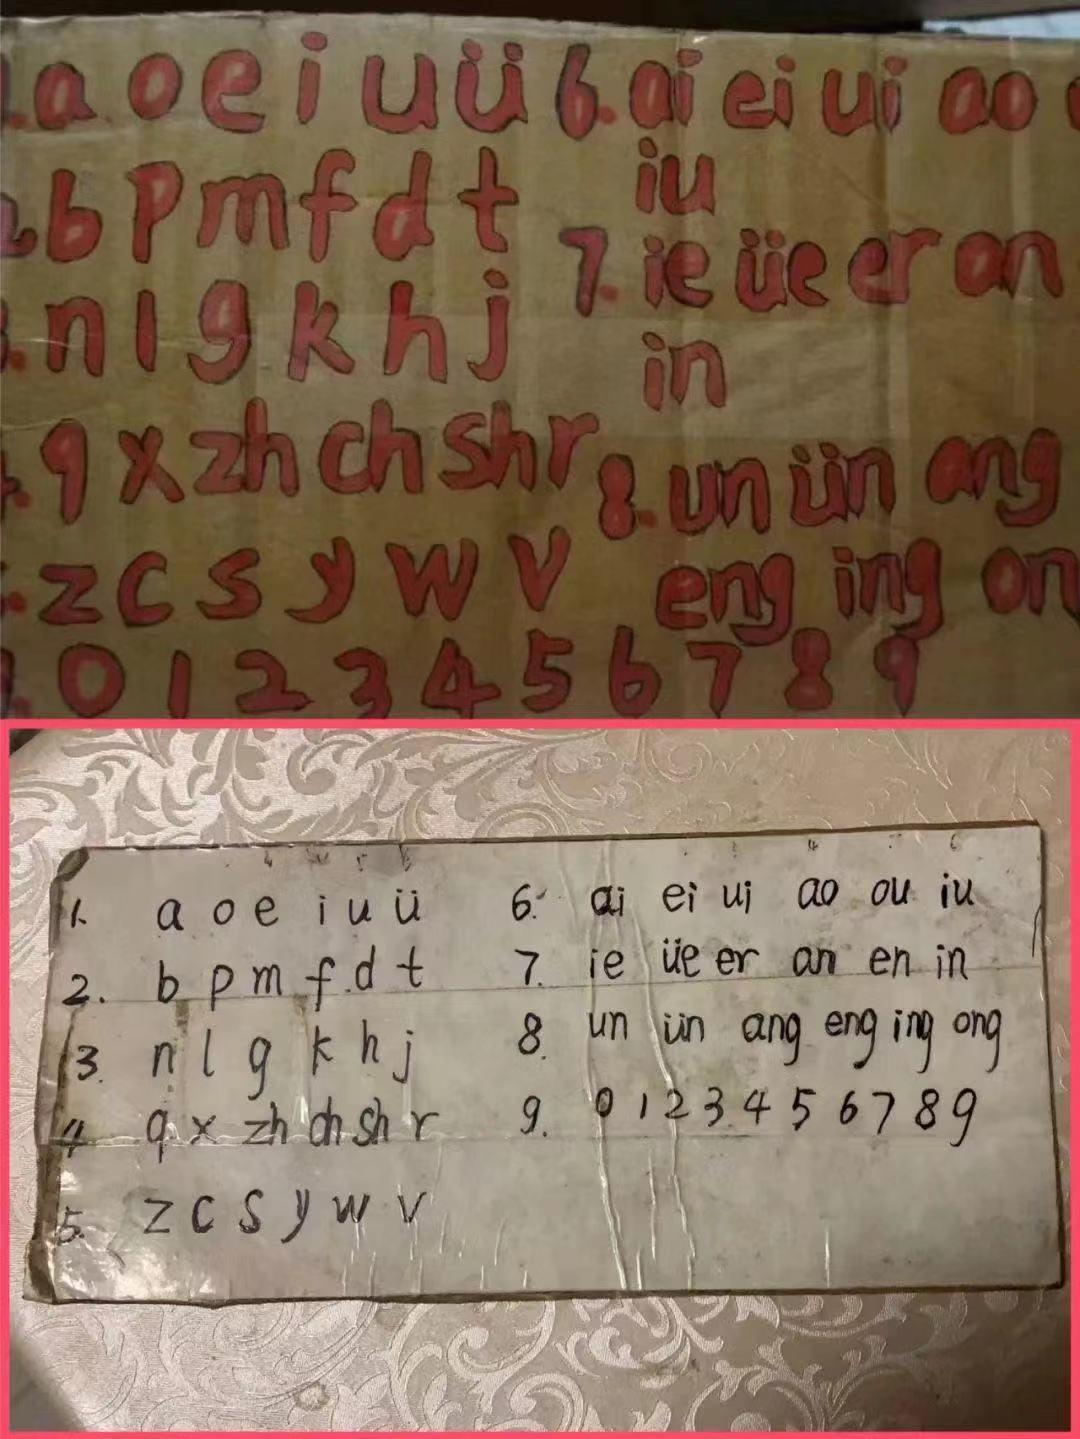 a o e i u ü
b p m f d t
n l g k h j
q x zh ch sh r
z c s y w v
0 1 2 3 4 5 6 7 8 9
6. ai ei ui ao
iu
7. ie üe er an
in
8. un ün ang
eng ing on
1. a o e i u ü
2. b p m f d t
3. n l g k h j
4 q x zh ch sh r
5. z c s y w v
6. ai ei ui ao ou iu
7. ie üe er an en in
8. un ün ang eng ing ong
9. 0 1 2 3 4 5 6 7 8 9